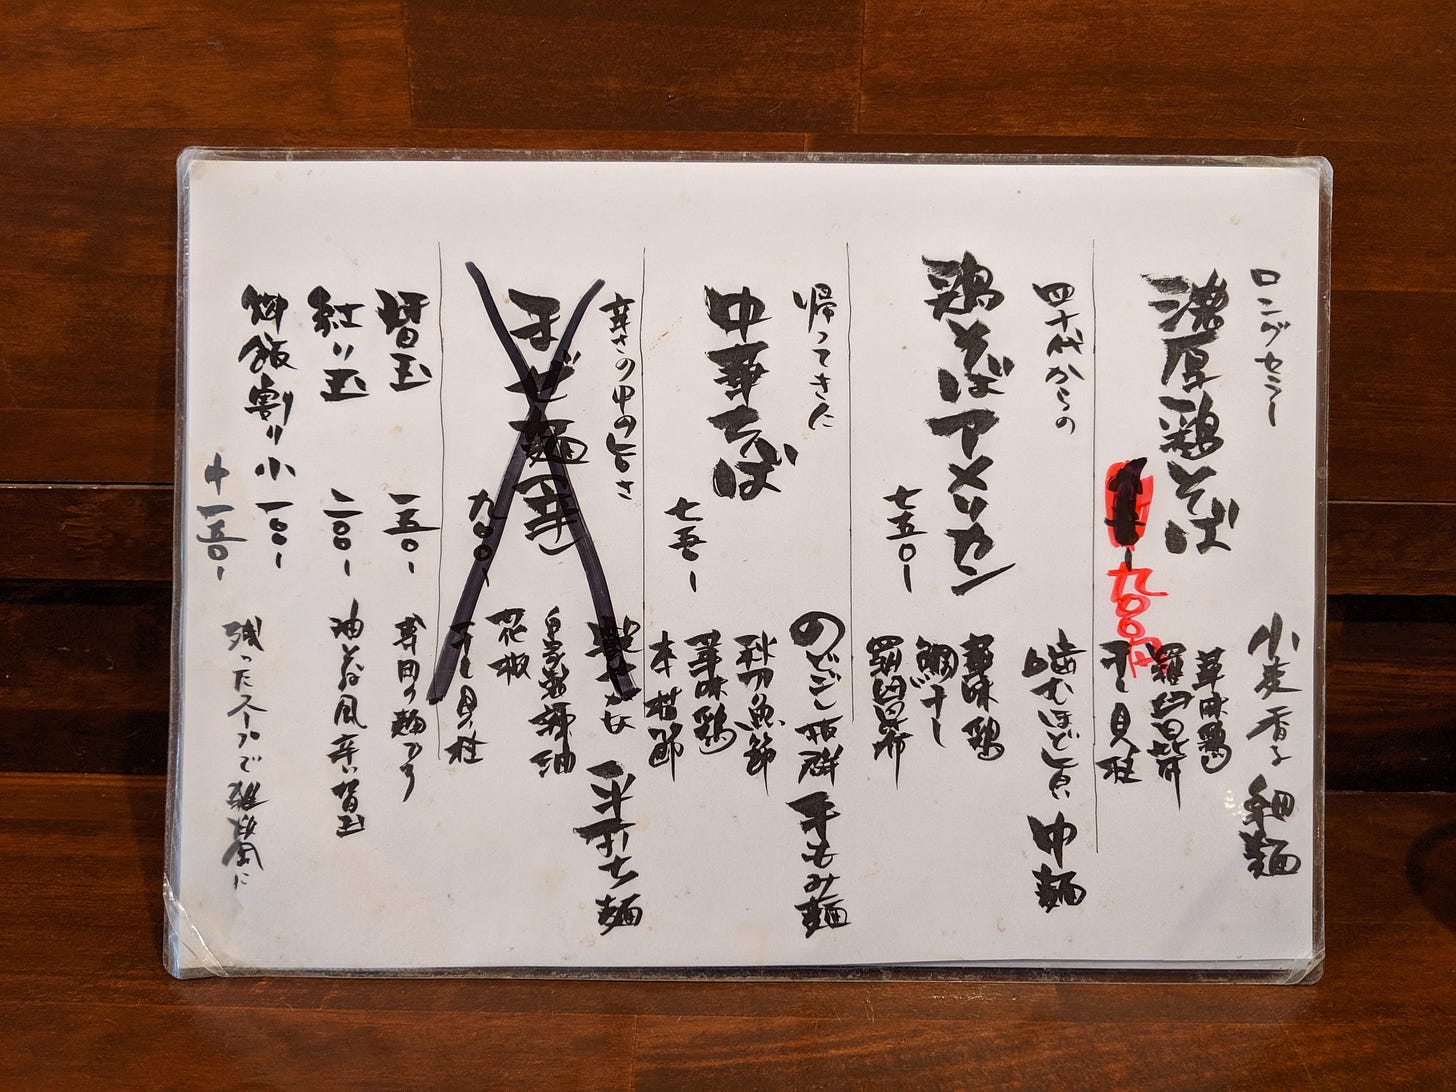 ロングセラー
濃厚鶏そば
九〇〇円
小麦香る 細麺
華味鶏
羅臼昆布
干し貝柱
四十代からの
鶏そばアメリカン
七五〇ー
噛むほど旨い 中麺
華味鶏
鯛干し
羅臼昆布
帰ってきた
中華そば
七五〇ー
のどごし抜群 手もみ麺
秋刀魚節
華味鶏
本枯節
辛さの中の旨さ
まぜ麺 華
九〇〇ー
平打ち麺
醤油
花椒
干し貝柱
替玉
一五〇ー
専用の麺です
紅り玉
二〇〇ー
油そば風辛い替玉
御飯割り 小 一〇〇ー
中 一五〇ー
残ったスープで雑炊風に